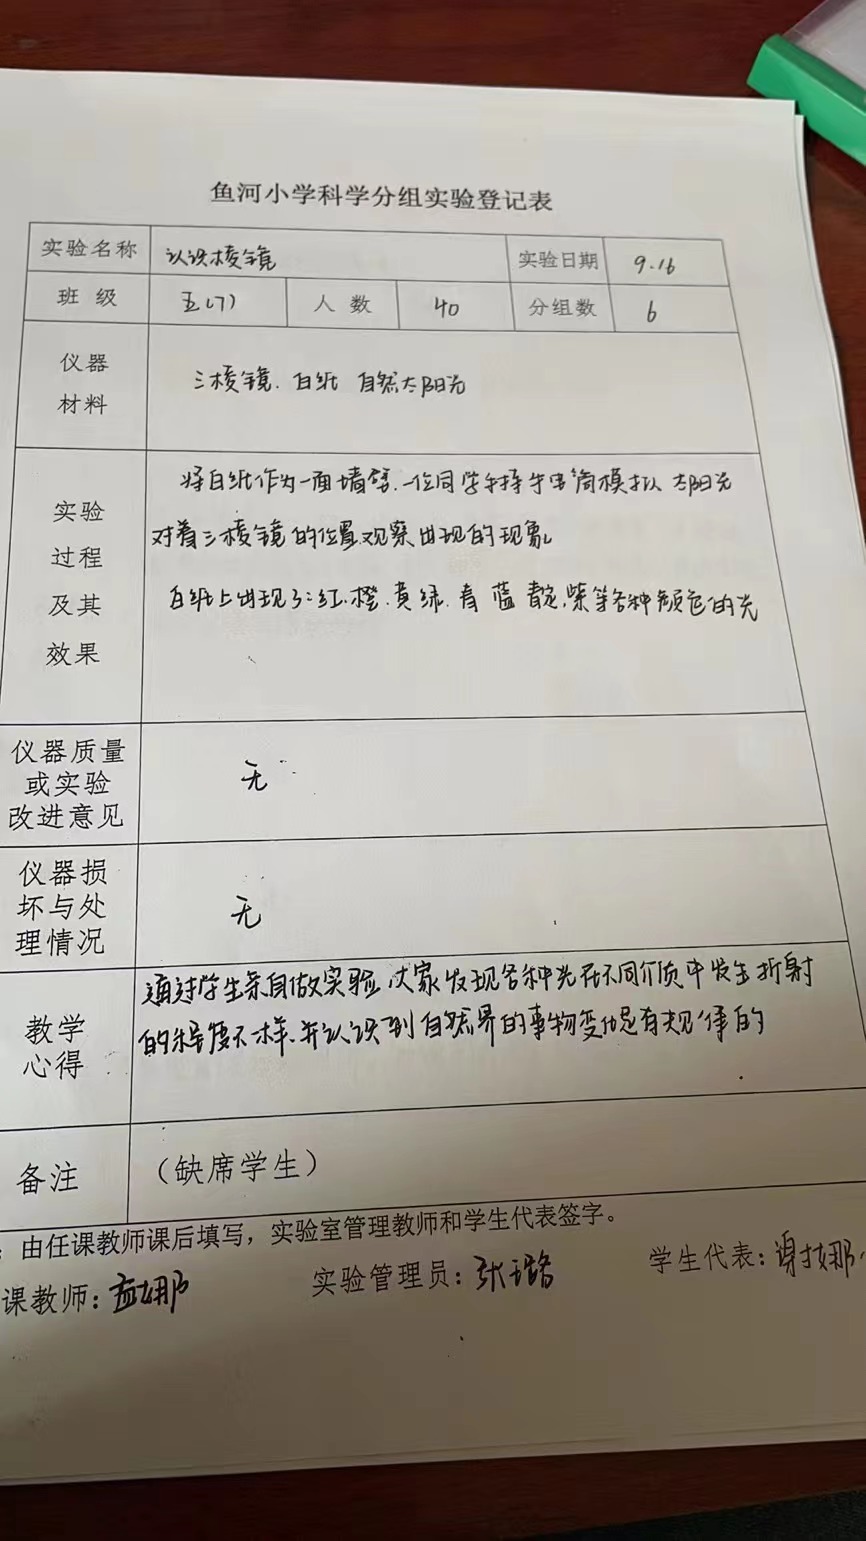 鱼河小学科学分组实验登记表
实验名称 认识棱镜 实验日期 9.16
班 级 五(7) 人 数 40 分组数 6
仪器
材料
三棱镜. 白纸 自然太阳光
实验
过程
及其
效果
将白纸作为一面墙壁.一位同学手持手电筒模拟太阳光
对着三棱镜的位置观察出现的现象
白纸上出现了:红.橙.黄绿.青 蓝 靛.紫等各种颜色的光
仪器质量
或实验
改进意见
无
仪器损
坏与处
理情况
无
教学
心得
通过学生亲自做实验,大家发现各种光在不同介质中发生折射
的程度不一样.并认识到自然界的事物变化是有规律的
备注
（缺席学生）
：由任课教师课后填写，实验室管理教师和学生代表签字。
课教师：娜 实验管理员：张璐 学生代表：谢娜